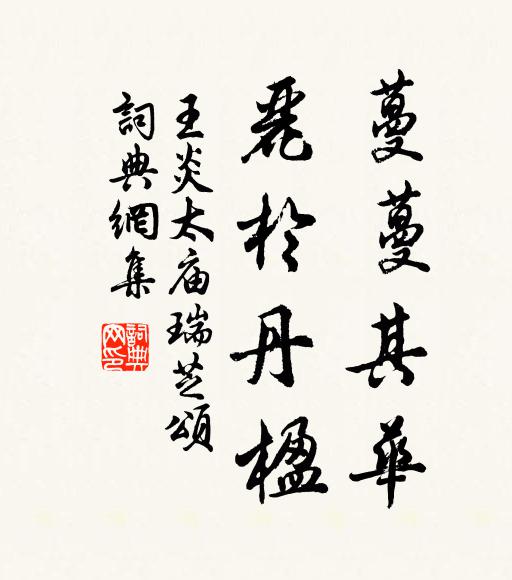 蔓蔓其華
麗於丹楹
王炎太庙瑞芝頌
詞典網集
詞典网印